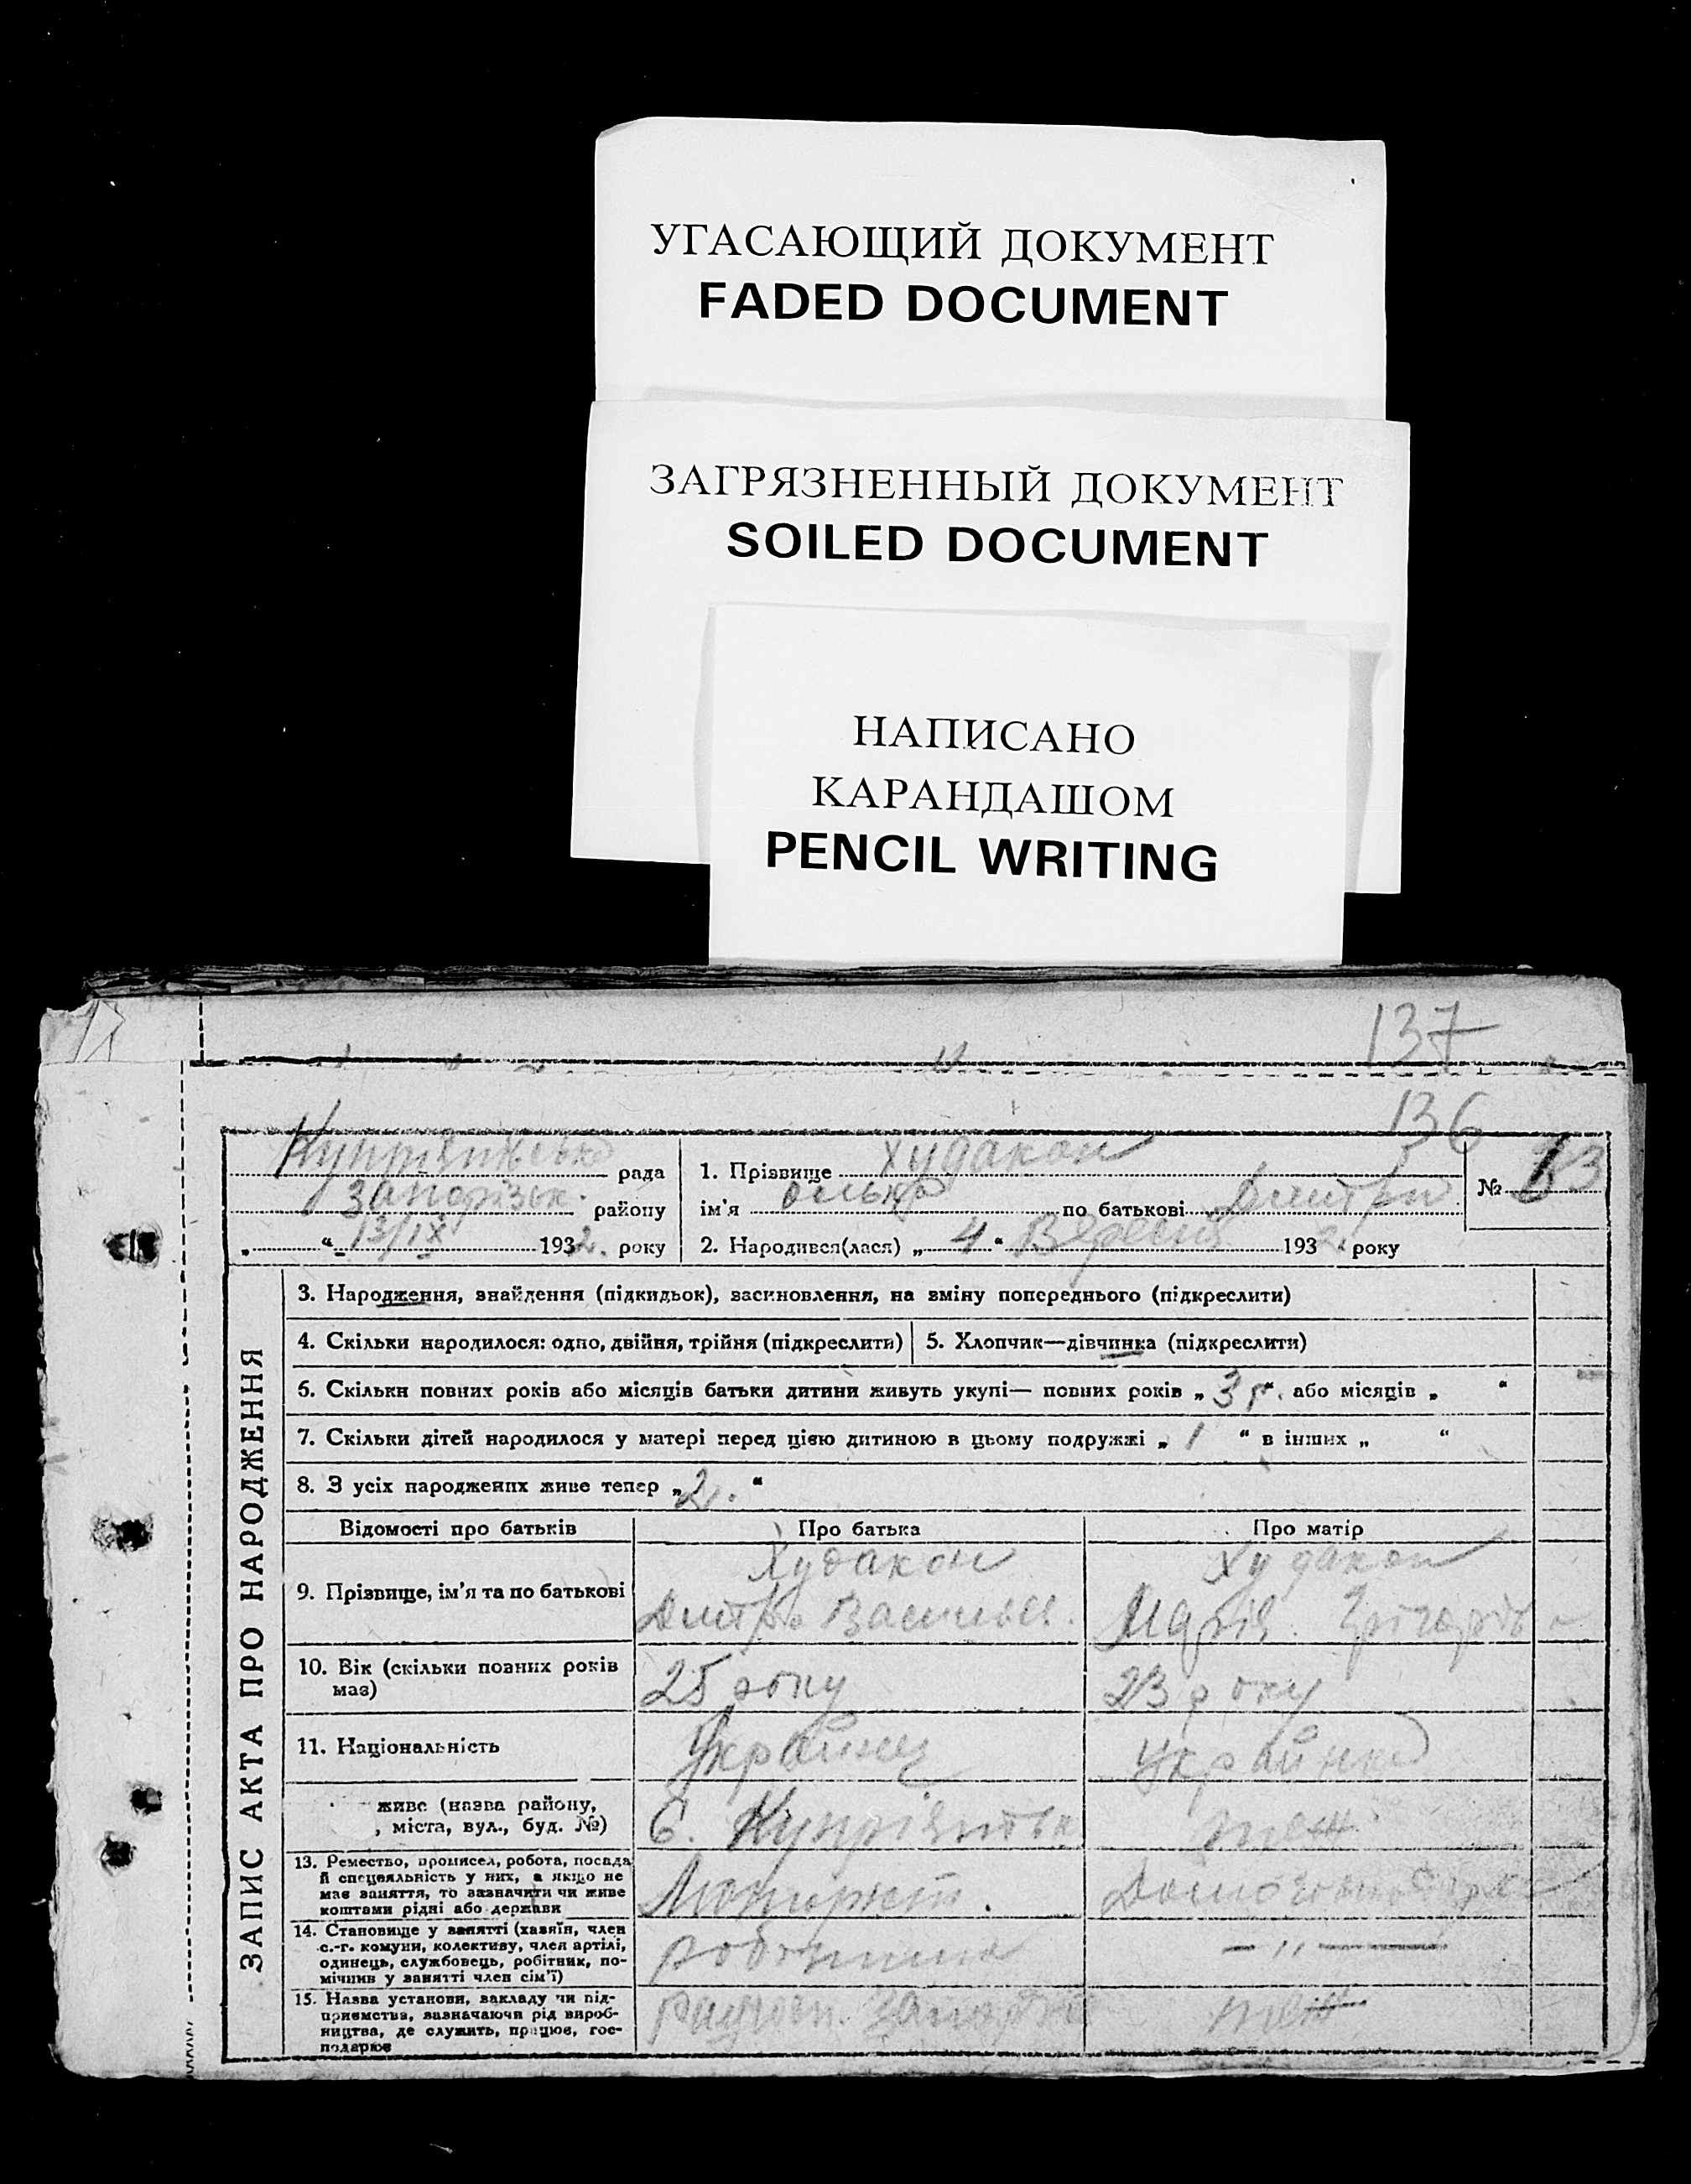 УГАСАЮЩИЙ ДОКУМЕНТ
FADED DOCUMENT
ЗАГРЯЗНЕННЫЙ ДОКУМЕНТ
SOILED DOCUMENT
НАПИСАНО
КАРАНДАШОМ
PENCIL WRITING
137
136
рада
району
„ “ 13/IX 1932. року
1. Прізвище Худакон
ім'я по батькові Дмитрі
2. Народився(лася) „ 4 “ Вересня 1932 року
№ 83
ЗАПИС АКТА ПРО НАРОДЖЕННЯ
3. Народження, знайдення (підкидьок), засиновлення, на зміну попереднього (підкреслити)
4. Скільки народилося: одно, двійня, трійня (підкреслити)
5. Хлопчик—дівчинка (підкреслити)
6. Скільки повних років або місяців батьки дитини живуть укупі— повних років „ 3 р. “ або місяців „ “
7. Скільки дітей народилося у матері перед цією дитиною в цьому подружжі „ 1 “ в інших „ “
8. З усіх народжених живе тепер „ 2. “
Відомості про батьків
Про батька
Про матір
9. Прізвище, ім'я та по батькові
Худакон
Дмитро
Худакон
Марія
10. Вік (скільки повних років
має)
25 року
23 року
11. Національність
Українец
Українка
живе (назва району,
, міста, вул., буд. №)
С.
теж
13. Ремество, промисел, робота, посада
й спеціяльність у них, а якщо не
має заняття, то зазначити чи живе
коштами рідні або держави
14. Становище у занятті (хазяїн, член
с.-г. комуни, колективу, член артілі,
одинець, службовець, робітник, по-
мічник у занятті член сім'ї)
— „ —
15. Назва установи, закладу чи під-
приємства, зазначаючи рід вироб-
ництва, де служить, працює, гос-
подарює
теж